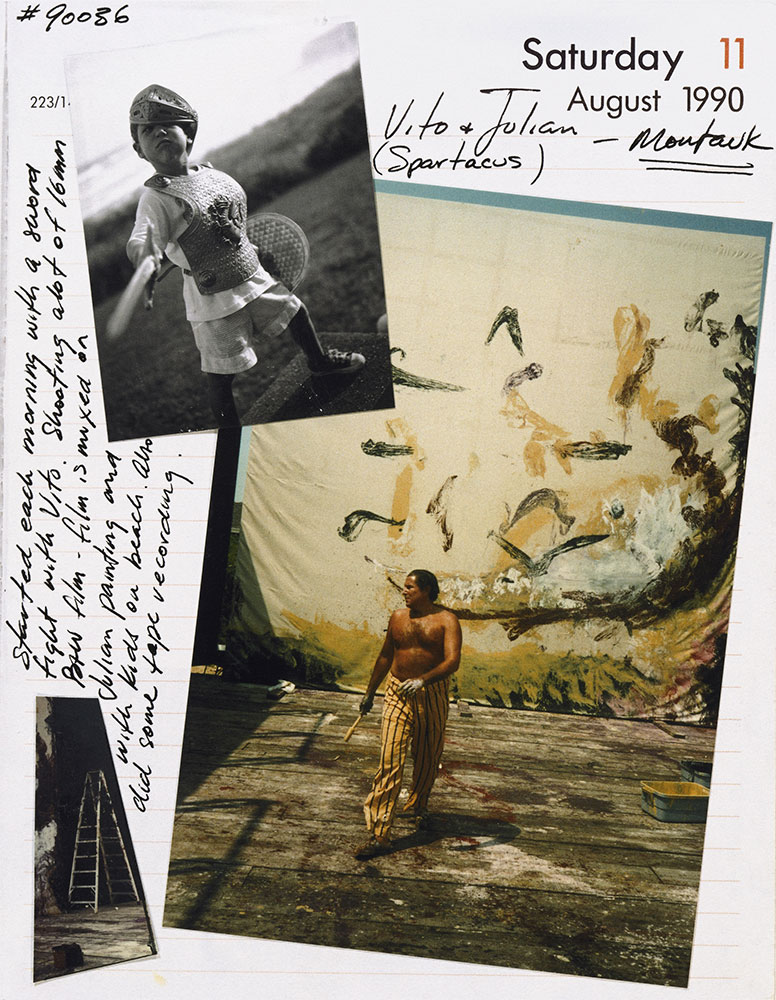 #90036
Saturday 11
August 1990
223/1
Vito + Julian — Montauk
(Spartacus)
Started each morning with a sword
fight with Vito. Shooting alot of 16mm
B+W film - film is mixed on
Julian painting and
with kids on beach. Also
did some tape recording.